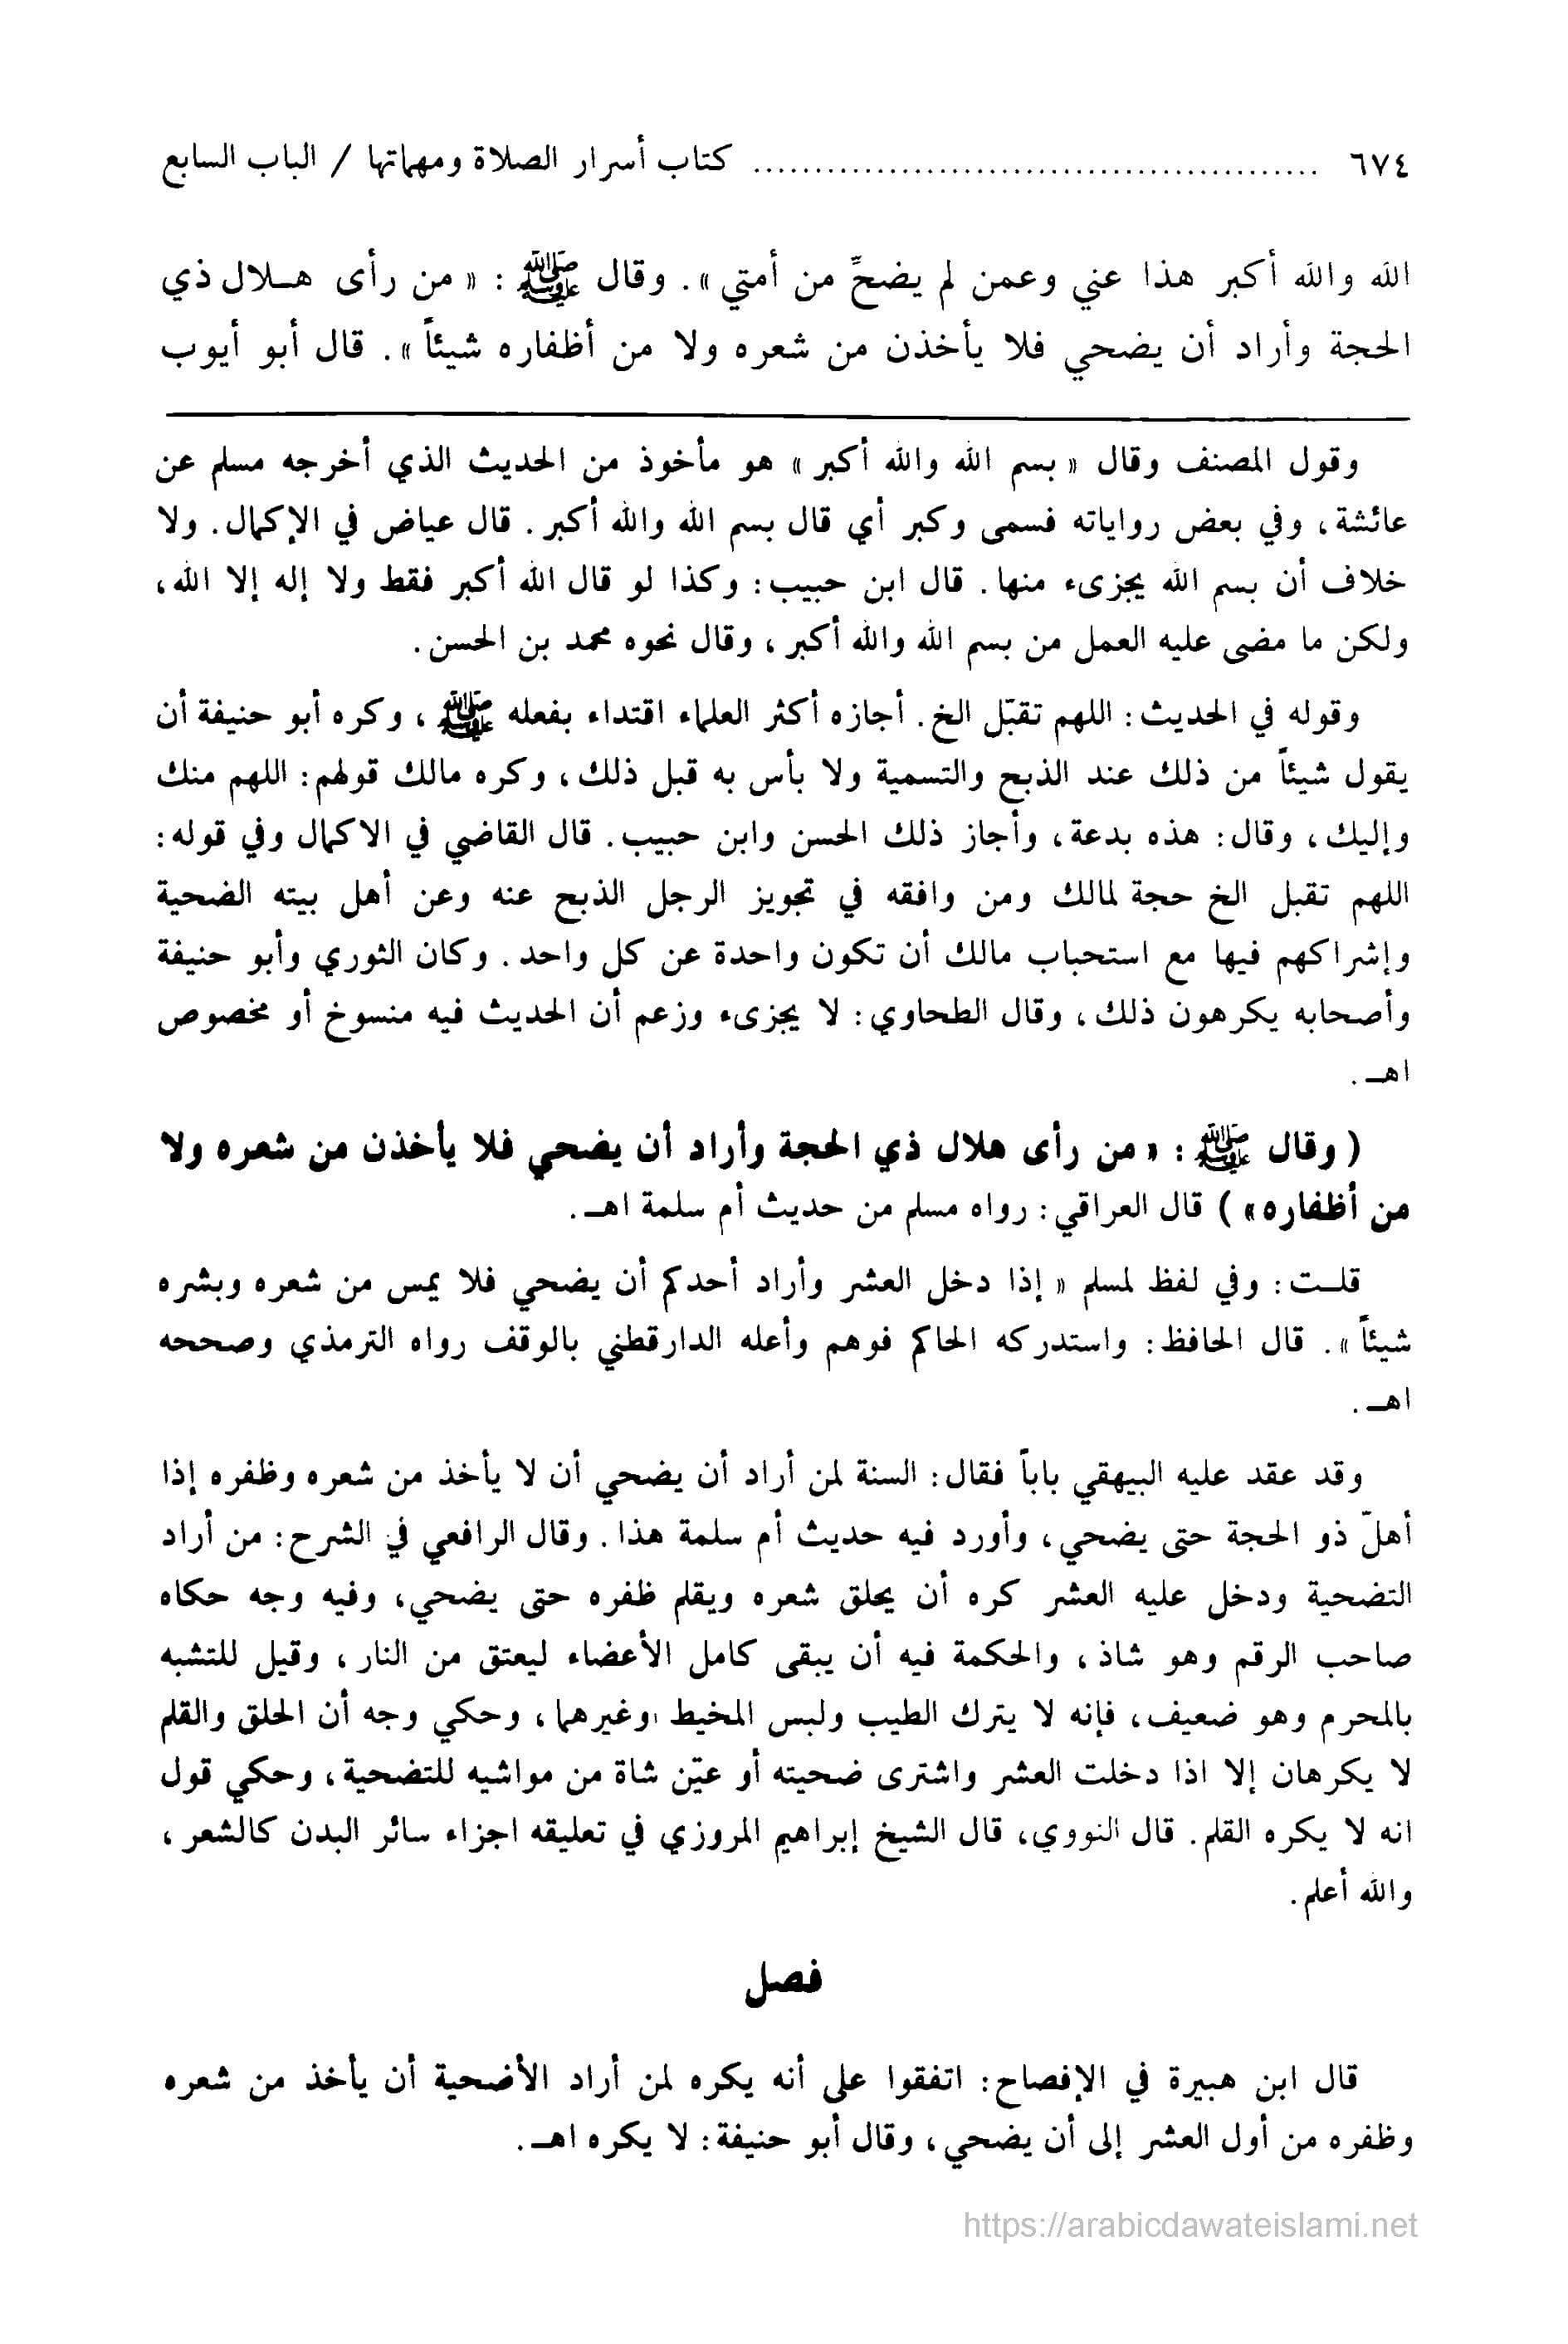 ٦٧٤ .............................................. كتاب أسرار الصلاة ومهماتها / الباب السابع
الله والله أكبر هذا عني وعمن لم يضحِّ من أمتي ». وقال ﷺ : « من رأى هـلال ذي
الحجة وأراد أن يضحي فلا يأخذن من شعره ولا من أظفاره شيئاً ». قال أبو أيوب
وقول المصنف وقال « بسم الله والله أكبر » هو مأخوذ من الحديث الذي أخرجه مسلم عن
عائشة ، وفي بعض رواياته فسمى وكبر أي قال بسم الله والله أكبر . قال عياض في الإكمال. ولا
خلاف أن بسم الله يجزىء منها. قال ابن حبيب: وكذا لو قال الله أكبر فقط ولا إله إلا الله،
ولكن ما مضى عليه العمل من بسم الله والله أكبر ، وقال نحوه محمد بن الحسن.
وقوله في الحديث: اللهم تقبّل الخ. أجازه أكثر العلماء اقتداء بفعله ﷺ ، وكره أبو حنيفة أن
يقول شيئاً من ذلك عند الذبح والتسمية ولا بأس به قبل ذلك، وكره مالك قولهم: اللهم منك
وإليك، وقال: هذه بدعة، وأجاز ذلك الحسن وابن حبيب. قال القاضي في الاكمال وفي قوله:
اللهم تقبل الخ حجة لمالك ومن وافقه في تجويز الرجل الذبح عنه وعن أهل بيته الضحية
وإشراكهم فيها مع استحباب مالك أن تكون واحدة عن كل واحد. وكان الثوري وأبو حنيفة
وأصحابه يكرهون ذلك، وقال الطحاوي: لا يجزىء وزعم أن الحديث فيه منسوخ أو مخصوص
اهـ .
( وقال ﷺ : « من رأى هلال ذي الحجة وأراد أن يضحي فلا يأخذن من شعره ولا
من أظفاره» ) قال العراقي: رواه مسلم من حديث أم سلمة اهـ.
قلـت: وفي لفظ لمسلم « إذا دخل العشر وأراد أحدكم أن يضحي فلا يمس من شعره وبشره
شيئاً ». قال الحافظ: واستدركه الحاكم فوهم وأعله الدارقطني بالوقف رواه الترمذي وصححه
اهـ .
وقد عقد عليه البيهقي باباً فقال: السنة لمن أراد أن يضحي أن لا يأخذ من شعره وظفره إذا
أهلّ ذو الحجة حتى يضحي، وأورد فيه حديث أم سلمة هذا. وقال الرافعي في الشرح: من أراد
التضحية ودخل عليه العشر كره أن يحلق شعره ويقلم ظفره حتى يضحي، وفيه وجه حكاه
صاحب الرقم وهو شاذ، والحكمة فيه أن يبقى كامل الأعضاء ليعتق من النار، وقيل للتشبه
بالمحرم وهو ضعيف، فإنه لا يترك الطيب ولبس المخيط وغيرهما، وحكي وجه أن الحلق والقلم
لا يكرهان إلا اذا دخلت العشر واشترى ضحيته أو عيّن شاة من مواشيه للتضحية، وحكي قول
انه لا يكره القلم. قال النووي، قال الشيخ إبراهيم المروزي في تعليقه اجزاء سائر البدن كالشعر ،
والله أعلم.
فصل
قال ابن هبيرة في الإفصاح: اتفقوا على أنه يكره لمن أراد الأضحية أن يأخذ من شعره
وظفره من أول العشر إلى أن يضحي، وقال أبو حنيفة: لا يكره اهـ.
https://arabicdawateislami.net